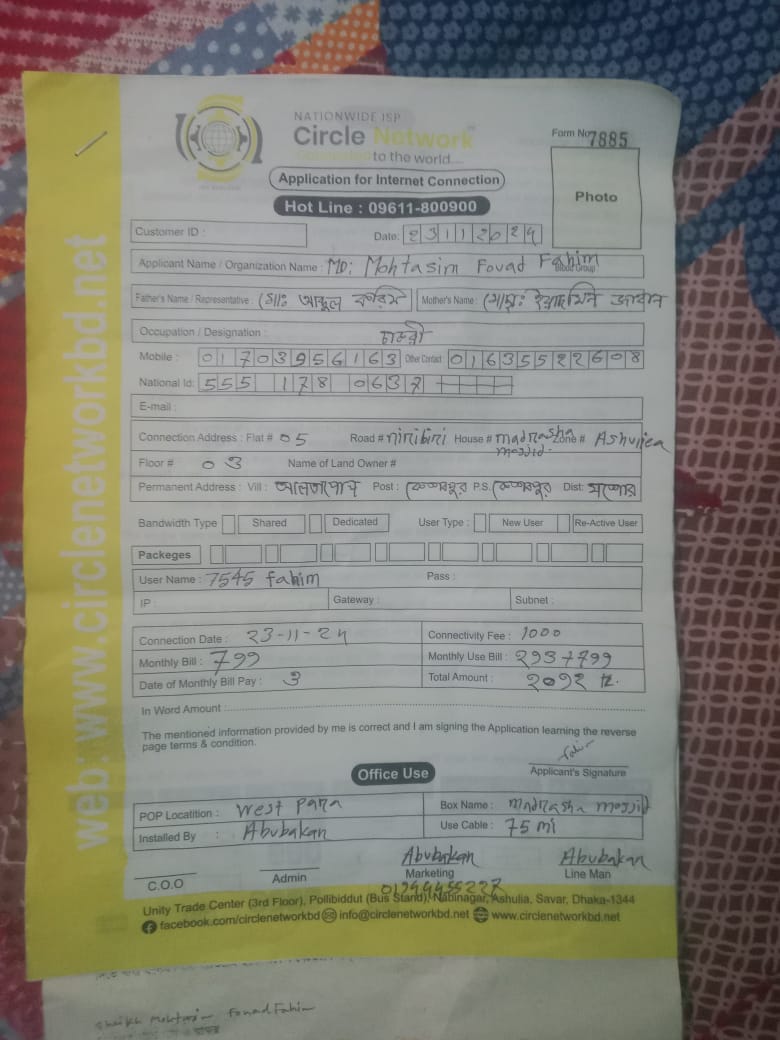 NATIONWIDE ISP
Circle Network
Connected to the world....
Form No 7885
Application for Internet Connection
Photo
Hot Line : 09611-800900
Customer ID :
Date: 23112024
Applicant Name / Organization Name : MD: Mohtasim Fouad Fahim
Blood Group :
Father's Name / Representative : মোঃ আব্দুল করিম Mother's Name : মোছাঃ ইয়াছমিন
Occupation / Designation : চাকরী
Mobile : 01703956163 Other Contact 01635522608
National Id: 555 178 0637
E-mail :
Connection Address : Flat # 05 Road # niribiri House # madrasha mosjid Zone # Ashuliea
Floor # 03 Name of Land Owner #
Permanent Address : Vill : আলতাপোল Post : কেশবপুর P.S. কেশবপুর Dist: যশোর
Bandwidth Type Shared Dedicated User Type : New User Re-Active User
Packeges
User Name : 7545 fahim Pass :
IP : Gateway : Subnet :
Connection Date : 23-11-24 Connectivity Fee : 1000
Monthly Bill : 799 Monthly Use Bill : 293+799
Date of Monthly Bill Pay : 3 Total Amount : ২০৯২ tk.
In Word Amount :
The mentioned information provided by me is correct and I am signing the Application learning the reverse
page terms & condition.
fahim
Applicant's Signature
Office Use
POP Locatition : West Para Box Name : madrasha mosjid
Installed By : Abubakar Use Cable : 75 mi
Abubakar Abubakar
C.O.O Admin Marketing Line Man
Unity Trade Center (3rd Floor), Pollibiddut (Bus Stand), Nabinagar, Ashulia, Savar, Dhaka-1344
facebook.com/circlenetworkbd info@circlenetworkbd.net www.circlenetworkbd.net
web: www.circlenetworkbd.net
Sheikh Mohtasim Fouad Fahim